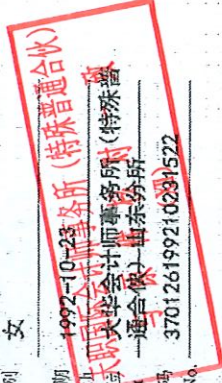 别 女
期 1992-10-23
华会计师事务所(特殊普
通合伙)山东分所
码 370126199210231522
No.
天职国际会计师事务所(特殊普通合伙)